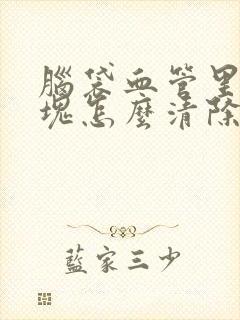 腦袋血管里
塊怎麼清除
藍家三少